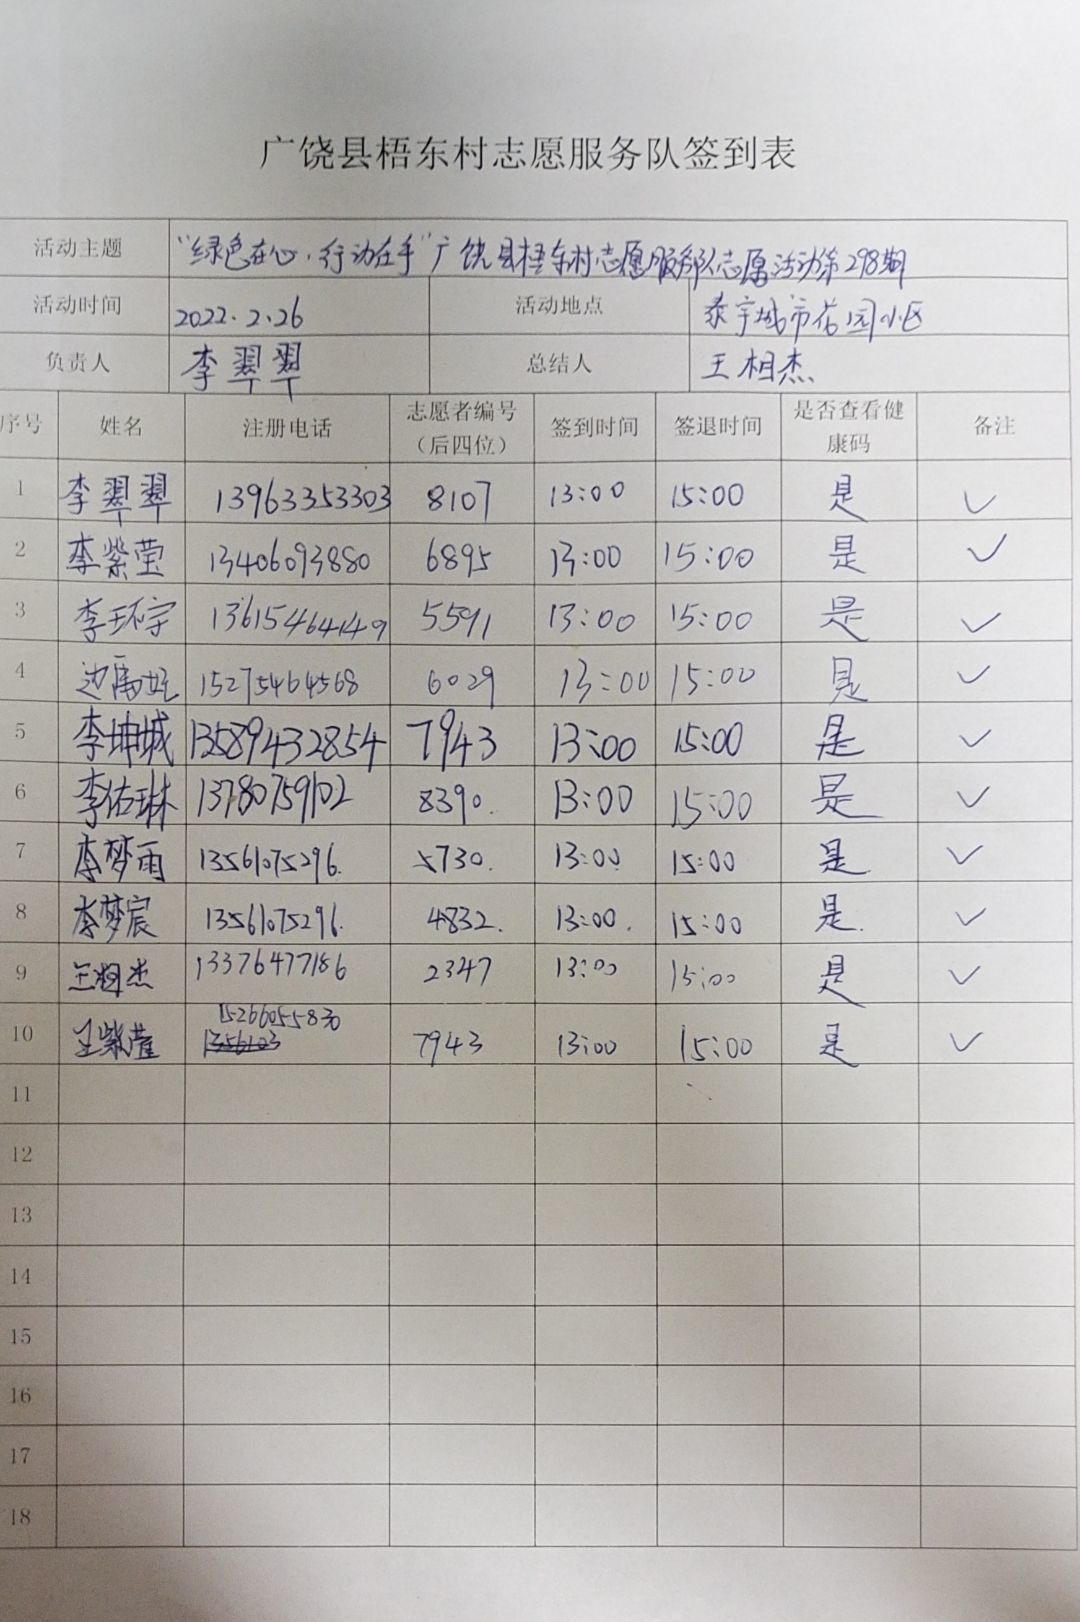 广饶县梧东村志愿服务队签到表
活动主题 “绿色在心,行动在手”广饶县梧东村志愿服务队志愿活动第298期
活动时间 2022.2.26 活动地点 泰宇城市花园小区
负责人 李翠翠 总结人 王相杰
序号 姓名 注册电话 志愿者编号(后四位) 签到时间 签退时间 是否查看健康码 备注
1 李翠翠 13963353303 8107 13:00 15:00 是 ✓
2 李紫莹 13406093880 6895 13:00 15:00 是 ✓
3 李环宇 13615464149 5591 13:00 15:00 是 ✓
4 边禹 15275464568 6029 13:00 15:00 是 ✓
5 李坤城 13589432854 7943 13:00 15:00 是 ✓
6 李佑琳 13780759102 8390. 13:00 15:00 是 ✓
7 李梦雨 13561075296. 5730. 13:00 15:00 是. ✓
8 李梦宸 13561075296. 4832. 13:00. 15:00 是. ✓
9 王相杰 13376477186 2347 13:00 15:00 是 ✓
10 王紫莹 15266055830 7943 13:00 15:00 是 ✓
11
12
13
14
15
16
17
18